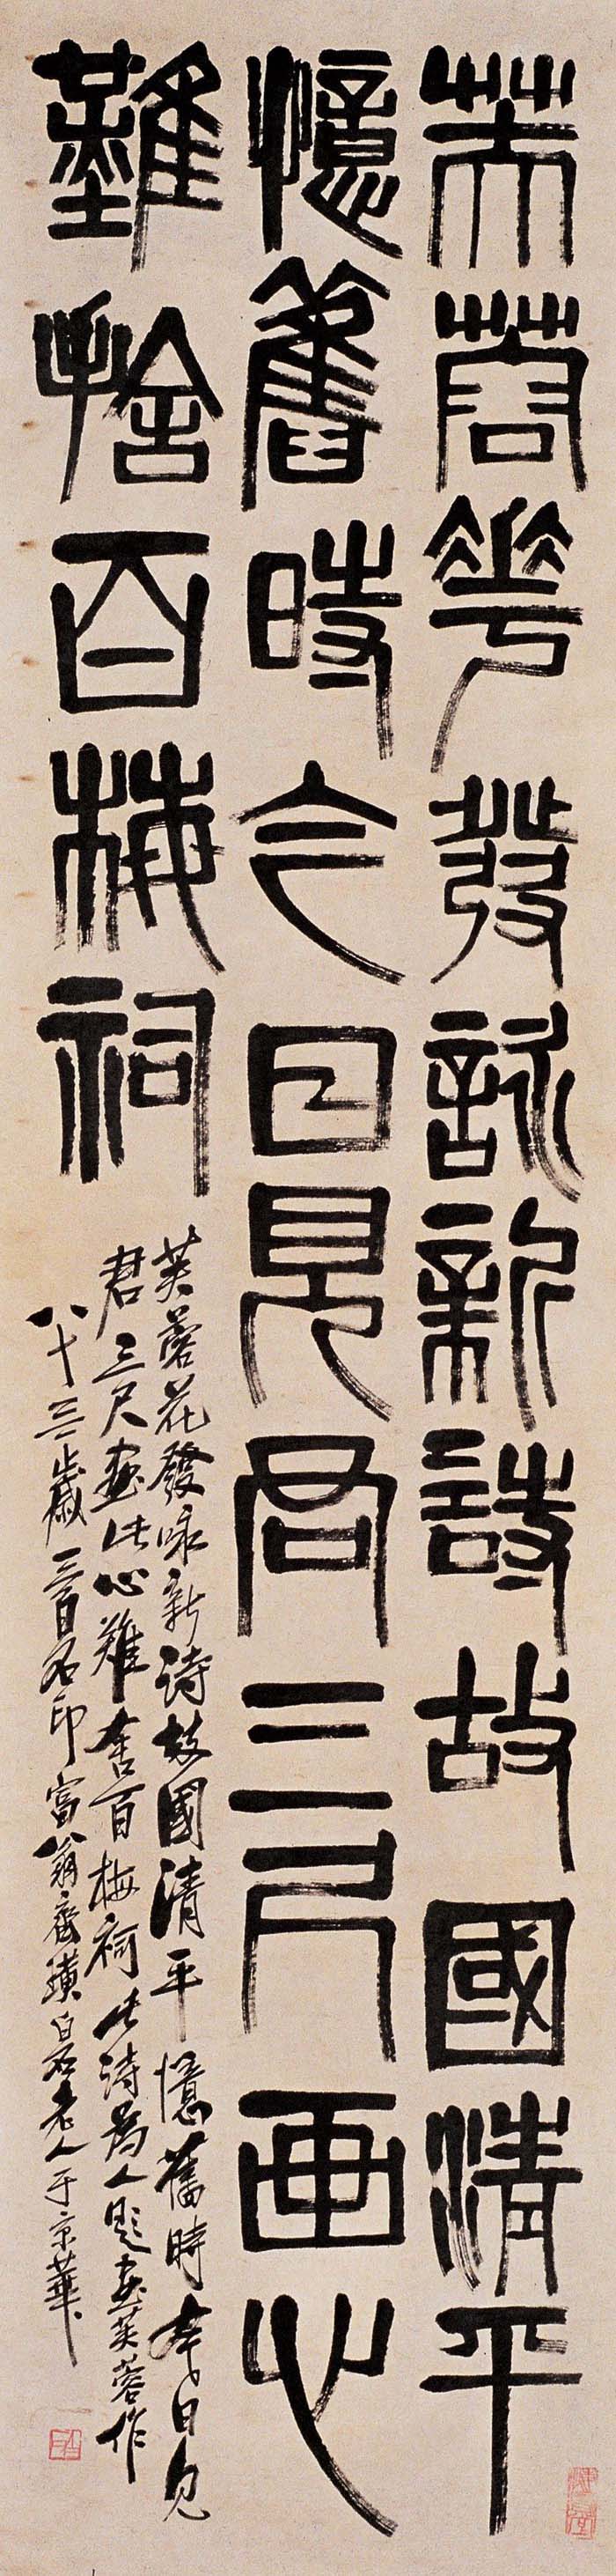 芙蓉華發詠新詩故國清平
憶舊時今日見君三尺畫心
難捨百梅祠
芙蓉花發咏新詩故國清平憶舊時今日見
君三尺畫此心難舍百梅祠此詩為人題畫芙蓉作
八十三歲三百石印富翁齊璜白石老人于京華
白石